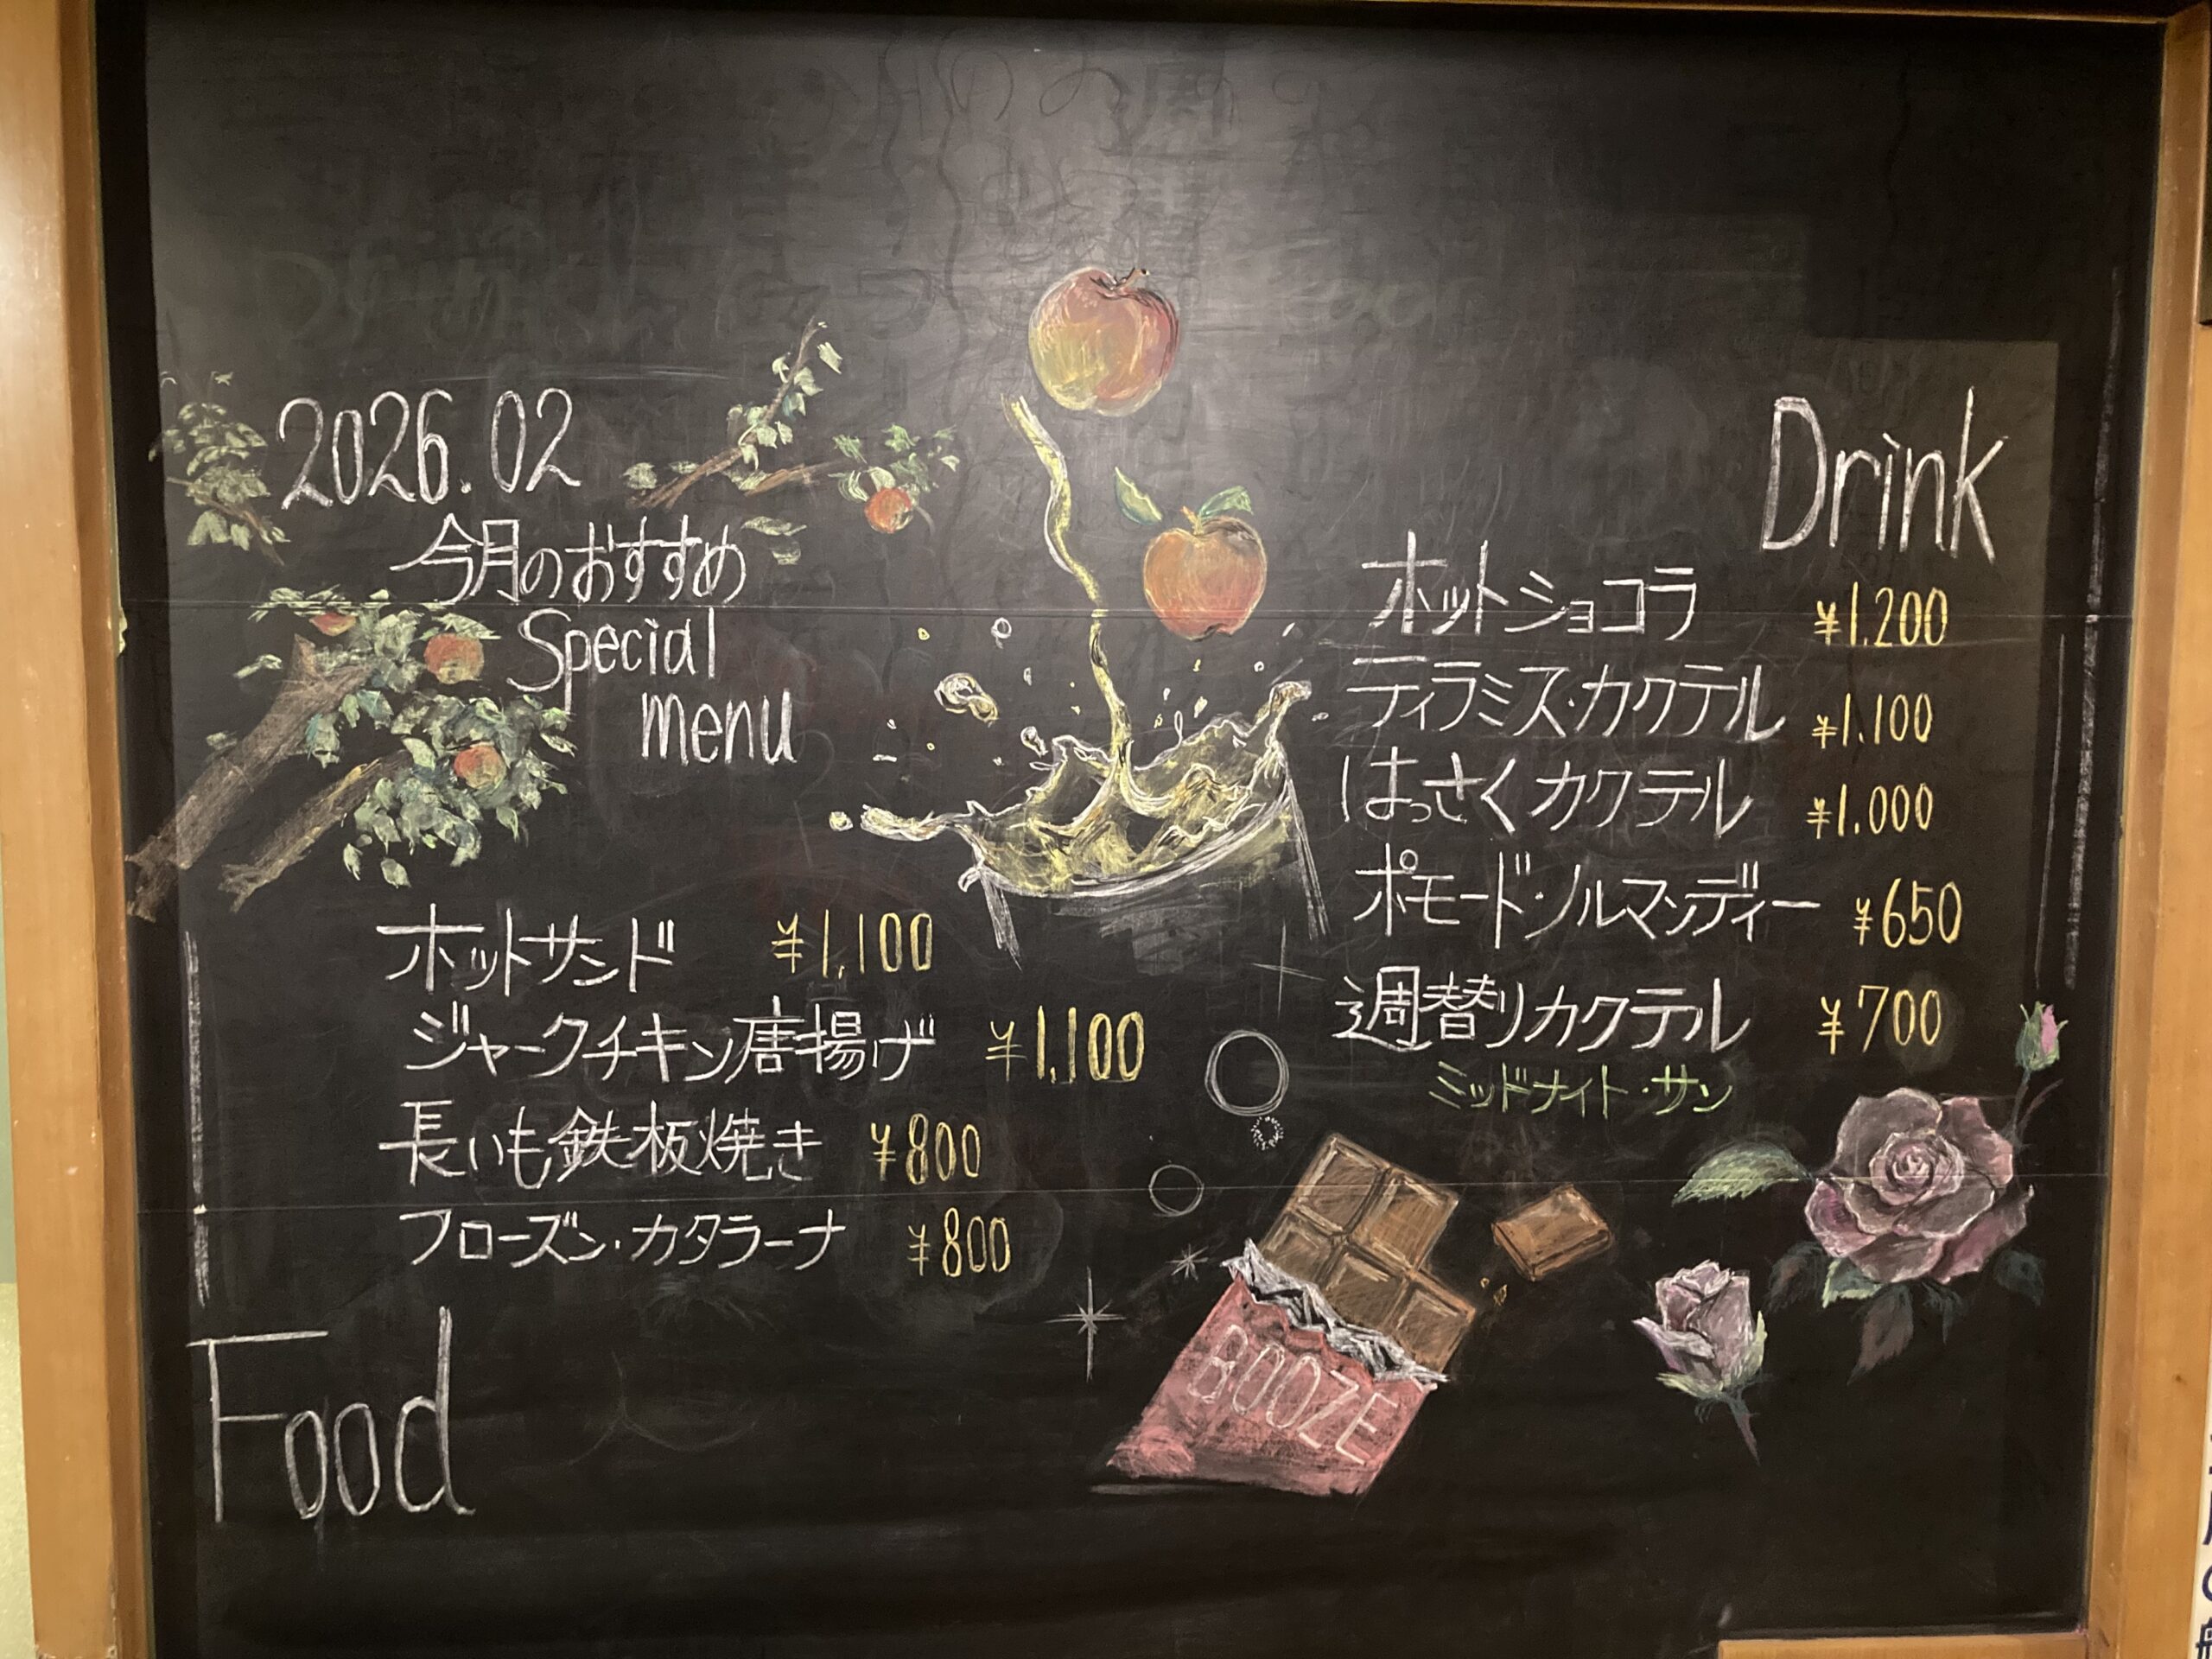 2026.02
今月のおすすめ
Special
menu
ホットサンド ¥1,100
ジャークチキン唐揚げ ¥1,100
長いも鉄板焼き ¥800
フローズン・カタラーナ ¥800
Food
Drink
ホットショコラ ¥1.200
ティラミス・カクテル ¥1.100
はっさくカクテル ¥1.000
ポモード・ノルマンディー ¥650
週替りカクテル ¥700
ミッドナイト・サン
BOOZE